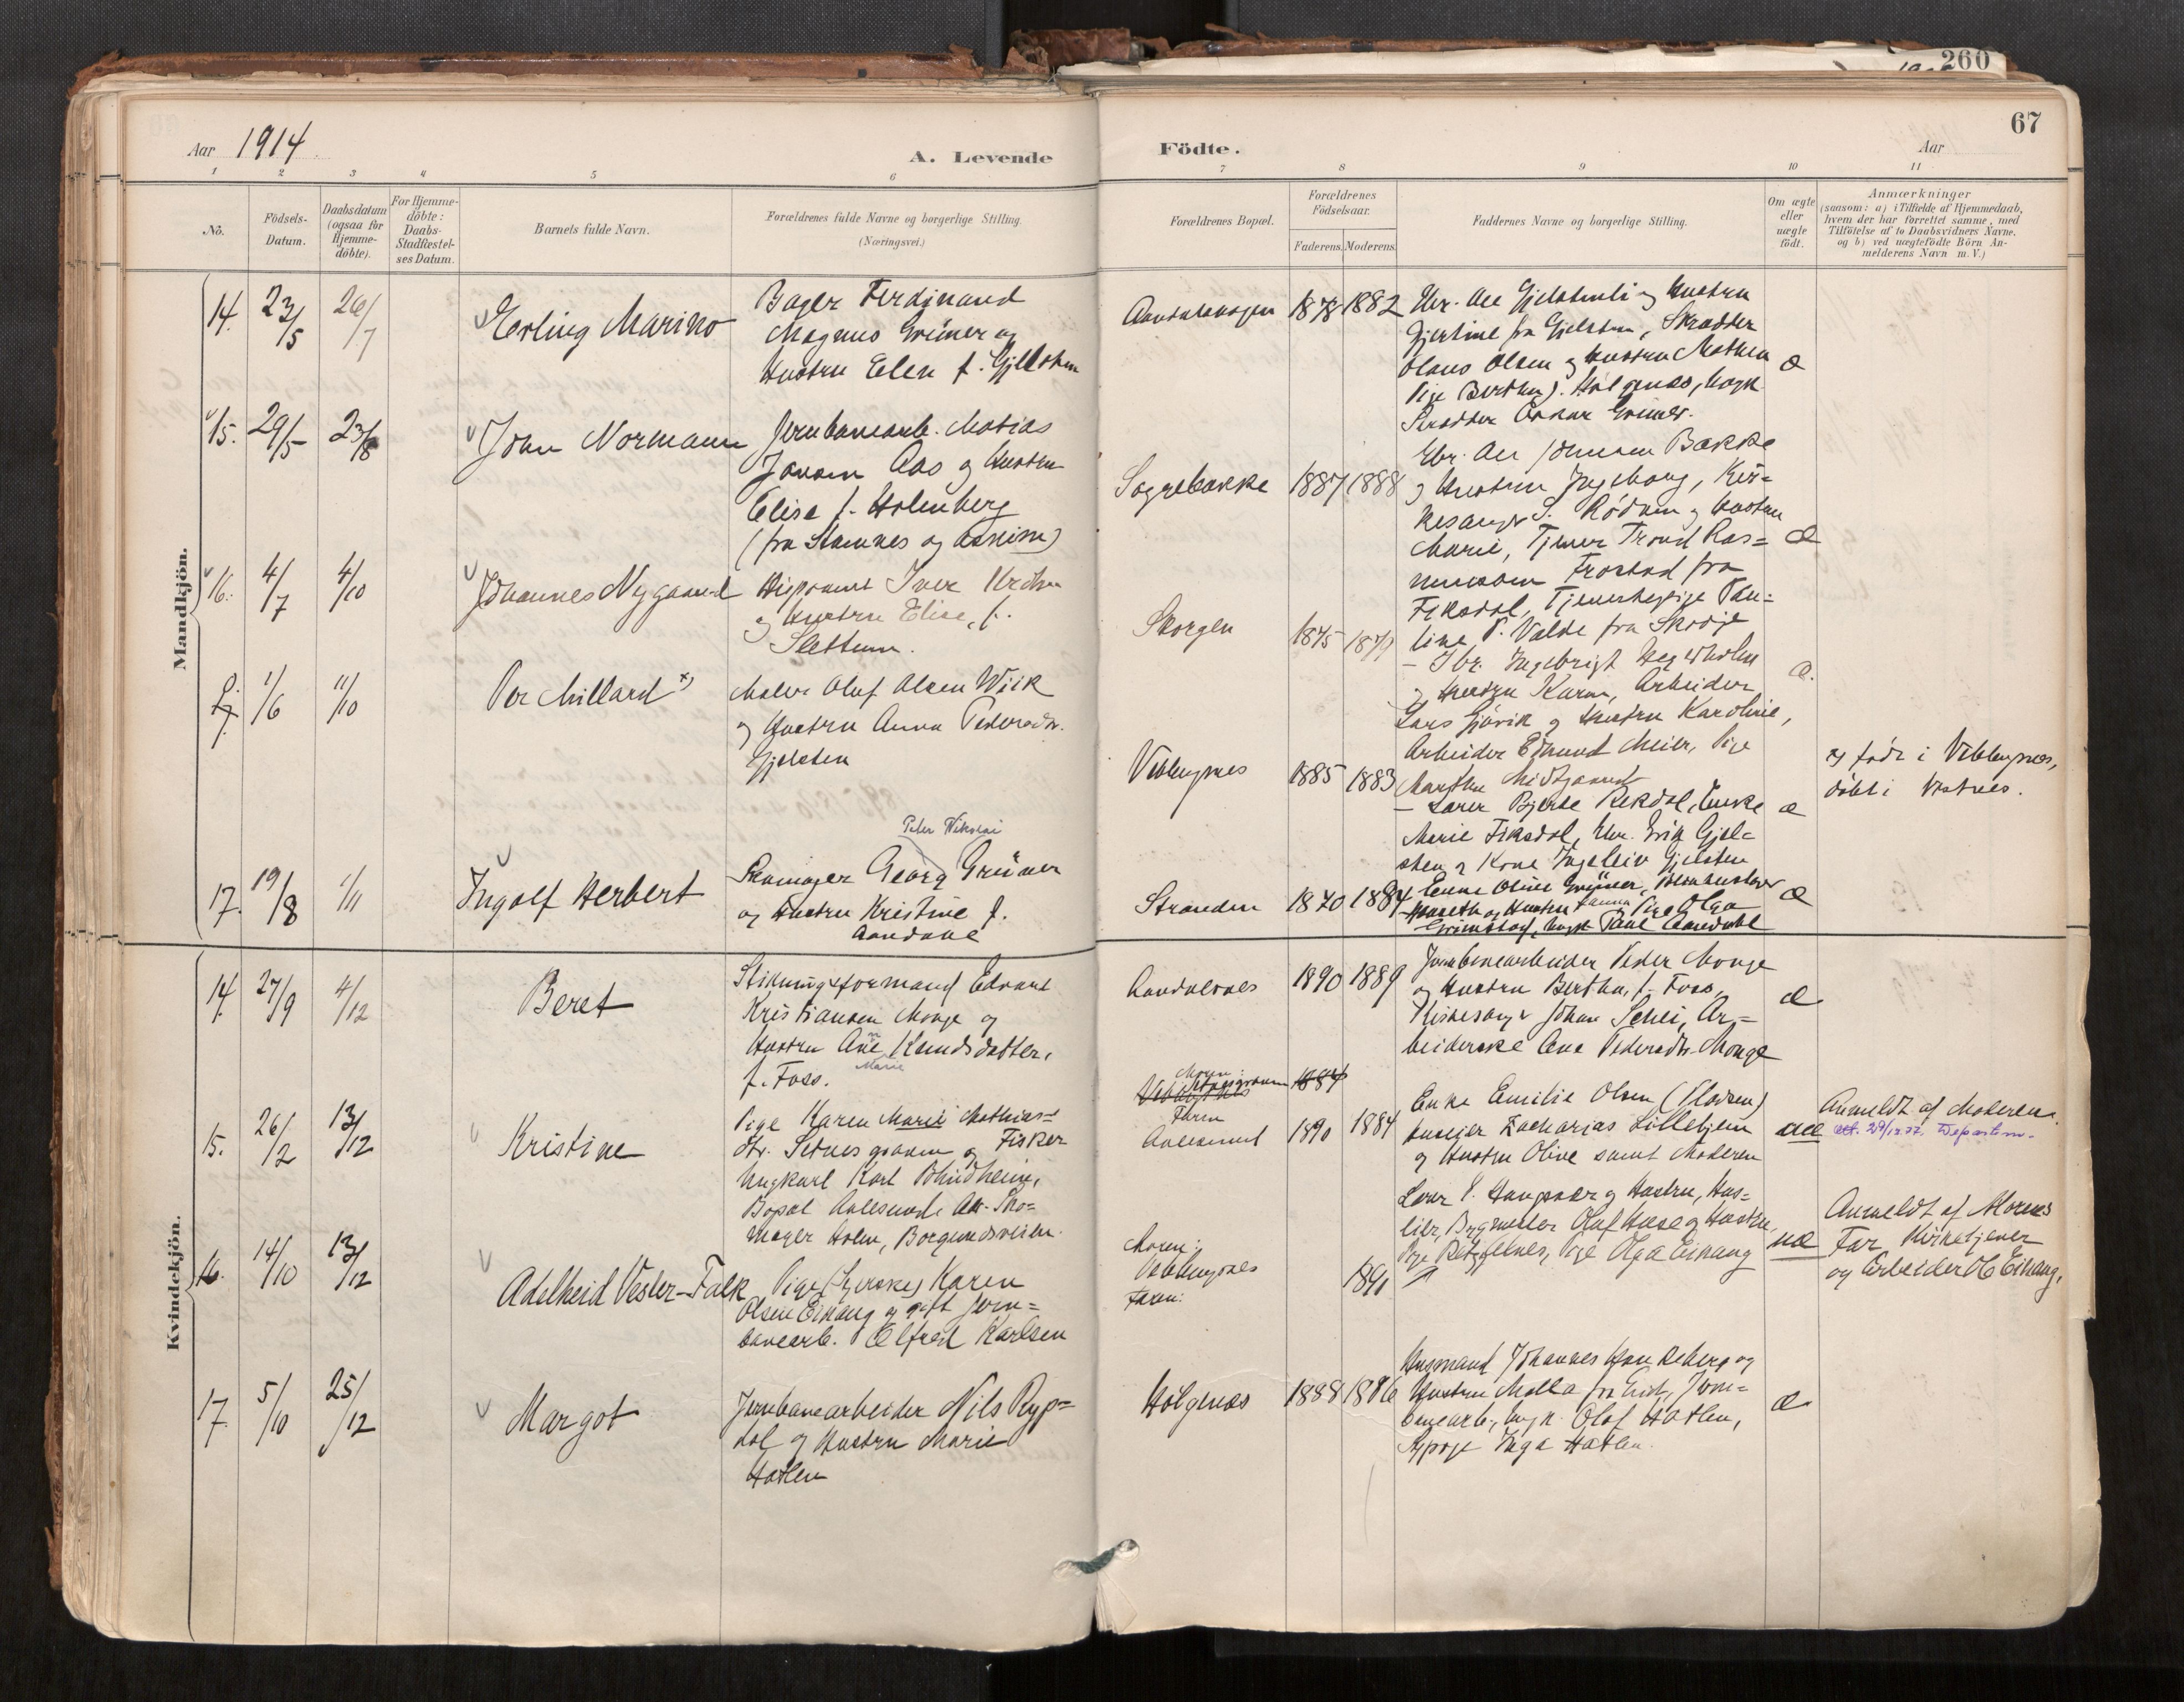 260
67
Aar 1914
A. Levende
Födte.
Aar
1 2 3 4 5 6 7 8 9 10 11
No.
Födsels-
Datum.
Daabsdatum
(ogsaa for
Hjemme-
döbte).
For Hjemme-
döbte:
Daabs-
Stadfæstel-
ses Datum.
Barnets fulde Navn.
Forældrenes fulde Navne og borgerlige Stilling.
(Næringsvei.)
Forældrenes Bopæl.
Forældrenes
Födselsaar.
Faderens. Moderens.
Faddernes Navne og borgerlige Stilling.
Om ægte
eller
uægte
födt.
Anmærkninger
(saasom: a) i Tilfælde af Hjemmedaab,
hvem der har forrettet samme, med
Tilföielse af to Daabsvidners Navne.
og b) ved uægtefödte Börn An-
melderens Navn m. V.)
Mandkjön.
14. 23/5 26/7 Erling Marino
Bager Ferdinand
Magnus Grüner og
Hustru Elen f. Gjelsten
1878 1882
Gbr. Ole Gjelstenli og Hustru
Gjertine fra Gjelsten, Skrædder
Olaus Olsen og Hustru Mathea
Pige Berthe J. Holgenæs, Ungk.
Skrædder Oskar Grüner.
æ
15. 29/5 23/8 John Normann
Jernbanearb. Matias
Jonsen Aas og Hustru
Elise f. Holenberg
(fra Stamnes og
Sogrebakke 1887 1888
Gbr. Ole Johnsen Bakke
og Hustru Ingeborg, Kir-
kesanger S. Rødven og Hustru
Marie, Tjener Trond Ras-
mussen Frostad fra
Fiksdal, Tjenestepige Pau-
line P. Valde fra Skodje
æ
16. 4/7 4/10 Johannes Nygaard
Disponent Iver Krohn
og Hustru Elise, f.
Slettum.
Skorgen 1875 1879
- Gbr. Ingebrigt Hegerholm
og Hustru Karen, Arbeider
Lars Gjørvik og Hustru Karoline,
Arbeider Edmund Meier, Pige
Marthe Midtgaard
æ.
1/6 11/10 Per Millard x)
Maler Oluf Olsen Wiik
og Hustru Anna Pedersdtr.
Gjelsten
Veblungsnes 1885 1883
- Lærer Bjerke Rekdal, Enke
Marie Fiksdal, Gbr. Erik Gjel-
sten og Kone Ingeleiv Gjelsten
æ
x) født i Veblungsnes,
døbt i Vestnes.
17. 19/8 1/11 Ingolf Herbert
Peter Nikolai
Skomager Georg Grüner
og Hustru Kristine f.
Aandahl
Stranden 1870 1884
Enke Oline Grüner,
og Hustru Hanna Pige Olga
Grimstad, Ungk. Paul Aandahl
æ
Kvindekjön.
14. 27/9 4/12 Beret
Stikningsformand Edvard
Kristiansen Monge og
Hustru Ane Knudsdatter,
f. Foss.
Aandalsnes 1890 1889
Jernbanearbeider Peder Monge
og Hustru Bertha, f. Foss,
Kirkesanger Johan Schei, Ar-
beiderske Ane Pedersdtr. Monge
æ
15. 26/2 13/12 Kristine
Marie
Pige Karen Marie Mathias-
dtr. Setnesgraven og Fisker
Ungkarl Karl Blindheim,
Bopæl Aalesund, Adr. Sko-
mager Holm, Borgundsveien.
Moren:
Veblungsnes 1884
Faren
Aalesund 1890 1884
Enke Emilie Olsen (Fladsen)
Huseier Zacharias Lillehjem
og Hustru Olive samt Moderen
uæ
Anmeldt af Moderen.
16. 14/10 13/12 Adelheid Vesler-Falk
Pige (Syerske) Karen
Olsen Eikang og gift Jern-
banearb. Elfred Karlsen
Moren:
Veblungsnes
Faren:
1891
Lærer P. Haugsvær og Hustru, Hus-
eier, Bygmester Olaf Huse og Hustru,
Pige Olga Eikang
uæ
Anmeldt af Morens
Far Kirketjener
og Arbeider O Eikang.
17. 5/10 25/12 Margot
Jernbanearbeider Nils Ryp-
dal og Hustru Marie
Hatlen
Holgenæs 1888 1886
Husmand Johannes
Hustru Malla fra Eid, Jern-
banearb., Ungk. Olaf Hatlen,
Sypige Inga Hatlen.
æ